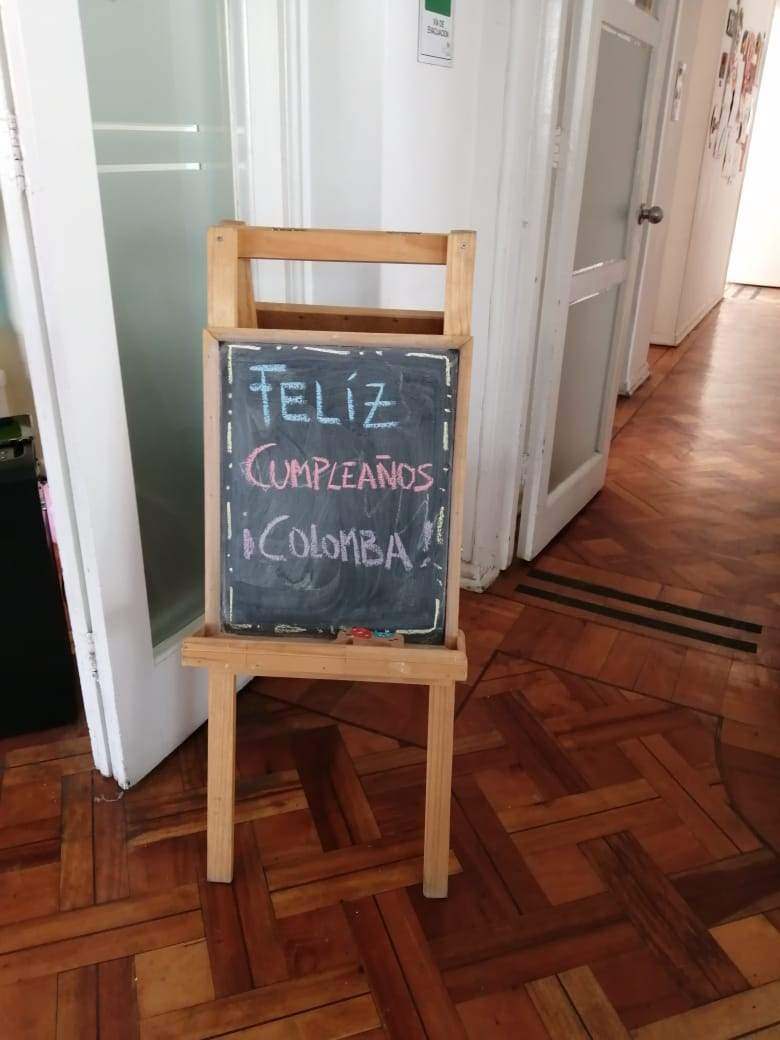 VÍA DE
EVACUACIÓN
FELÍZ
CUMPLEAÑOS
¡COLOMBA!